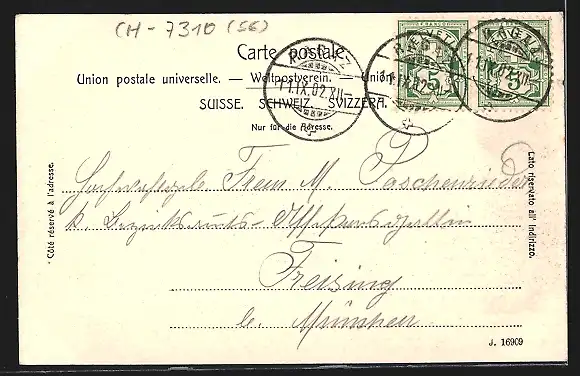 CH-7310 (56)
Carte postale.
Union postale universelle. — Weltpostverein. — Unione
SUISSE. SCHWEIZ. SVIZZERA.
Nur für die Adresse.
RAGAZ
11.IX.02.XII-
HELVETIA
FRANCO
5
RAGAZ
11.IX.02.XII-
5
Côté réservé à l'adresse.
Lato riservato all' indirizzo.
Frau M. Paschenrieder
k. Bezirksamts-
Freising
b. München
6
J. 16909